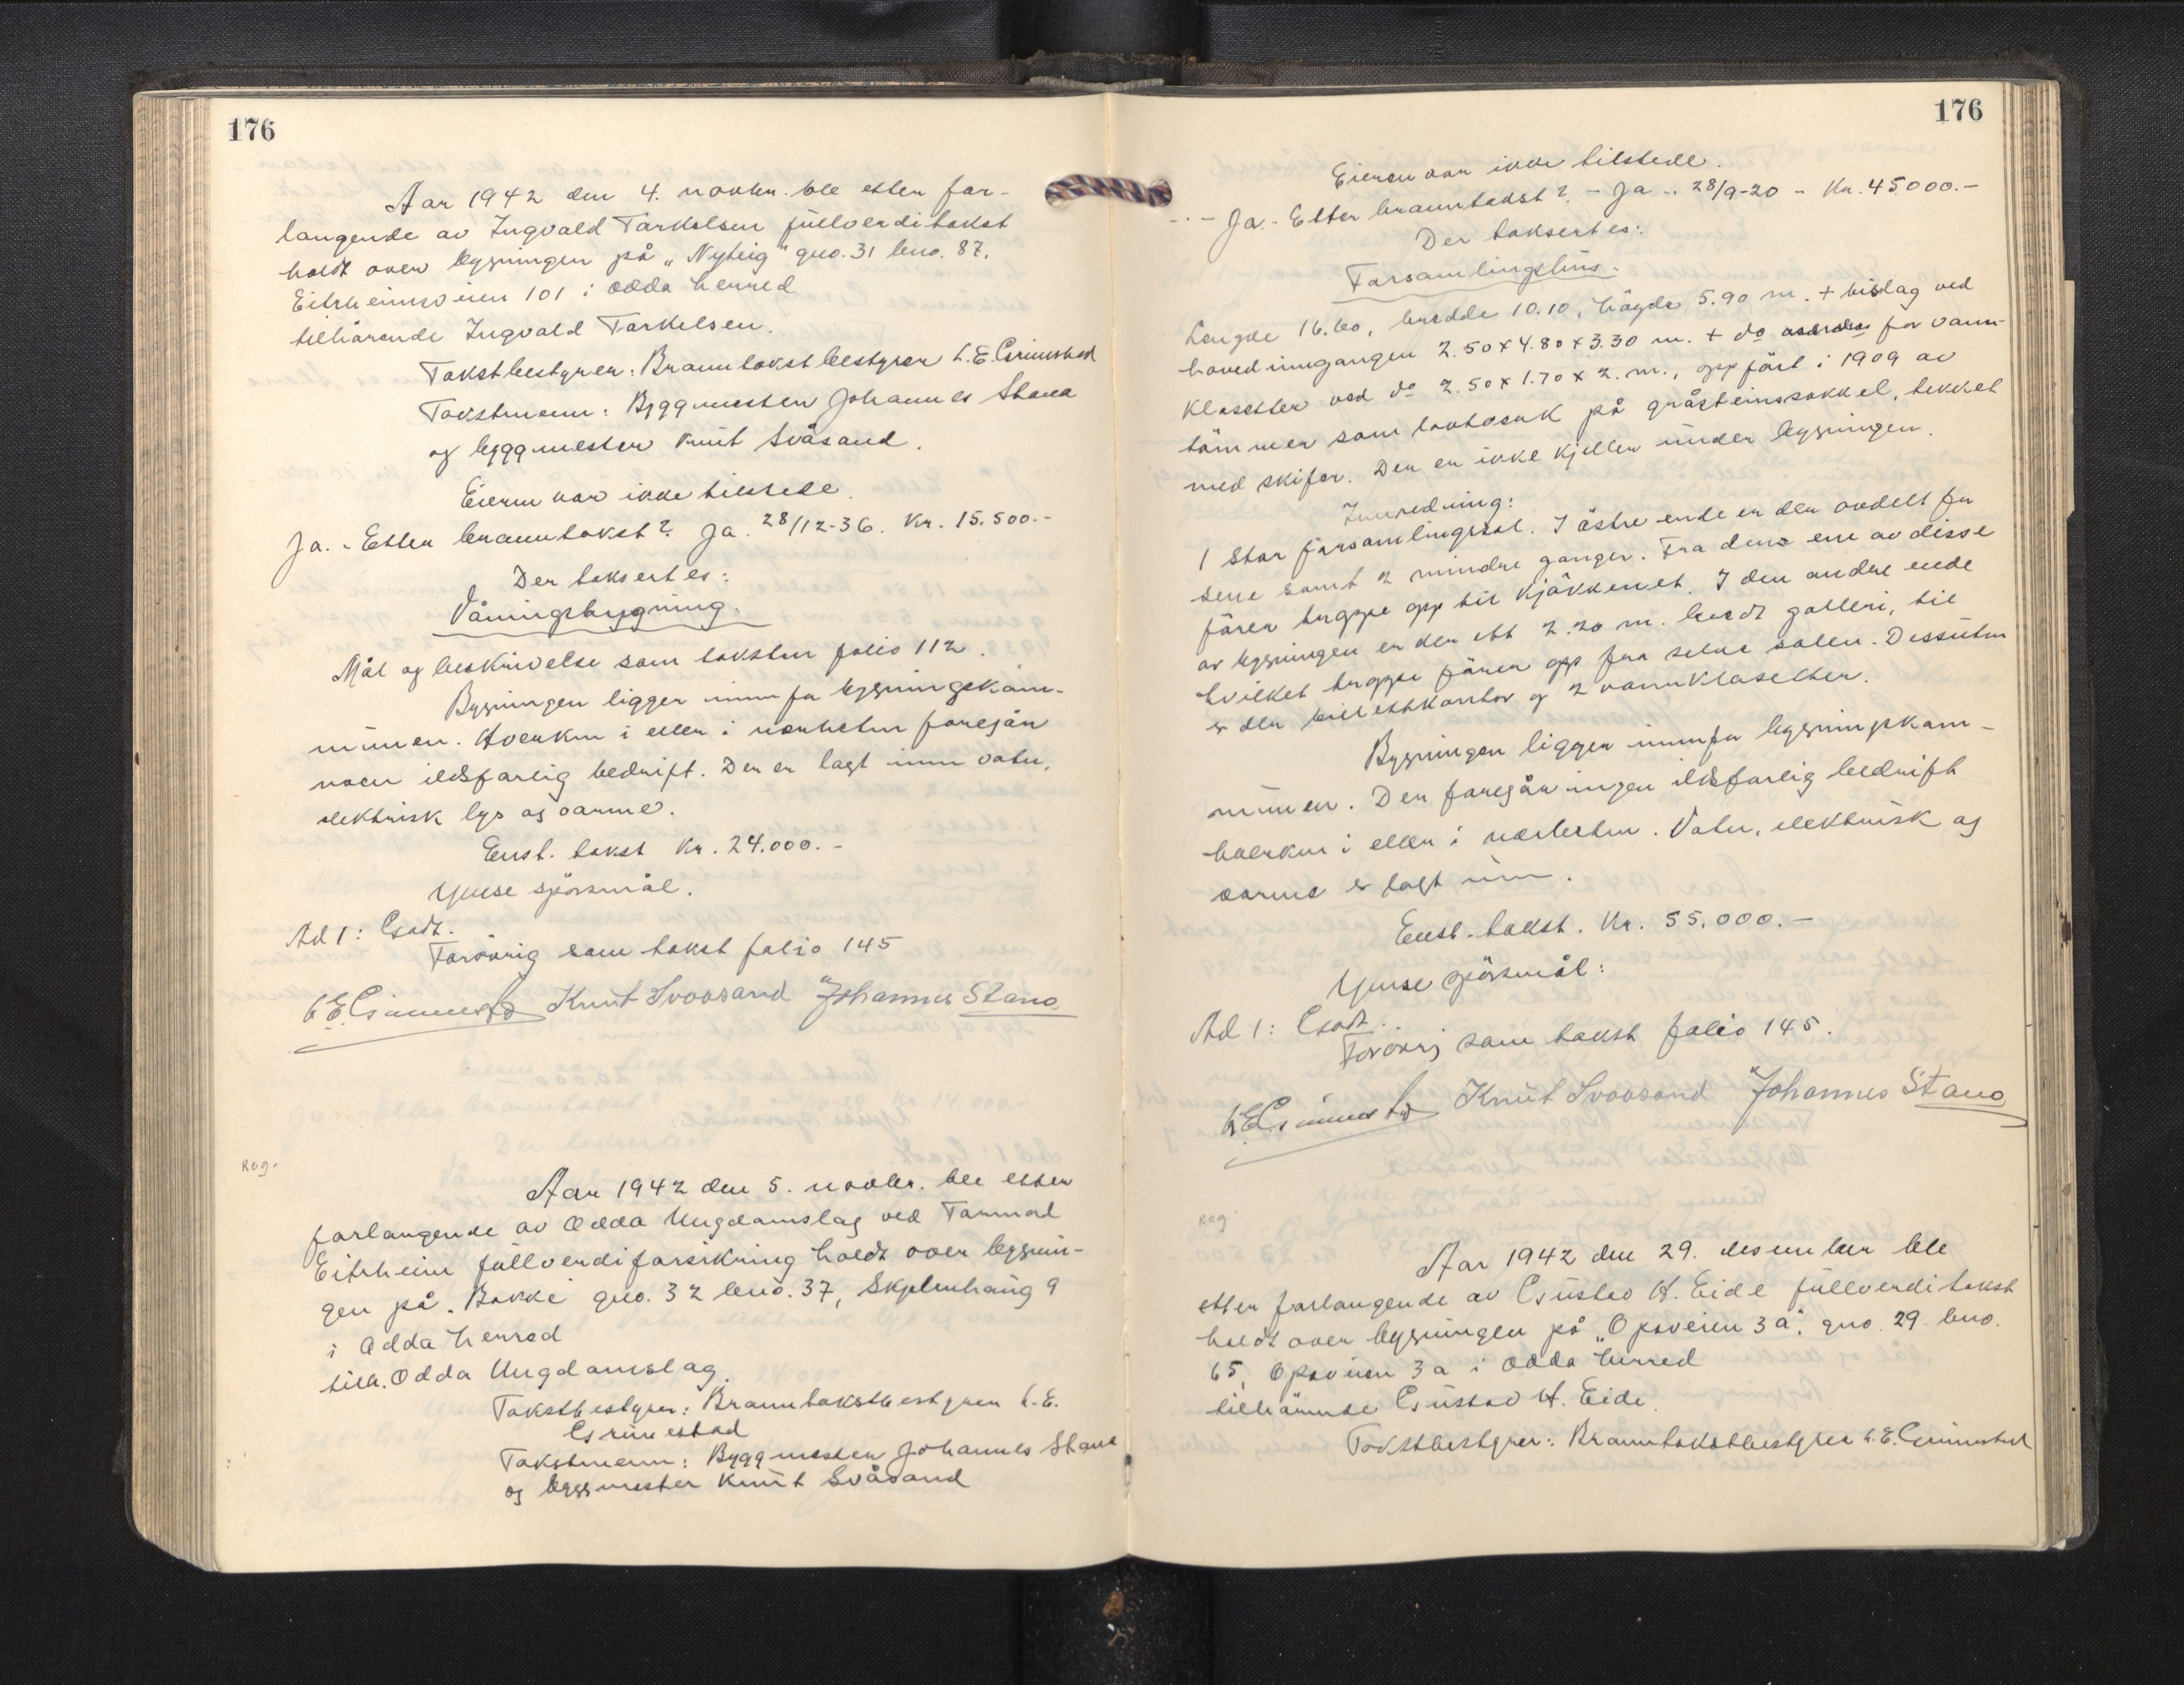 176
Aar 1942 den 4. novbr. ble etter for-
langende av Ingvald Torkelsen fullverditakst
holdt over bygningen på „Nyteig" gno. 31 bno. 87,
Eitrheimsveien 101 i Odda herred
tilhörende Ingvald Torkelsen.
Takstbestyrer: Branntakstbestyrer L.E. Grimestad
Takstmenn: Byggmester Johannes Stana
og byggmester Knut Svåsand.
Eieren var ikke tilstede.
Ja. - Etter branntakst? Ja. 28/12-36. Kr. 15.500.-
Der taksertes:
Våningsbygning.
Mål og beskrivelse som taksten folio 112.
Bygningen ligger innenfor bygningskom-
munen. Hverken i eller i nærheten foregår
noen ildsfarlig bedrift. Der er lagt inn vatn,
elektrisk lys og varme.
Enst. takst Kr. 24.000.-
Ymse spörsmål.
Ad 1: Godt.
Forövrig som takst folio 145
L E Grimestad Knut Svaasand Johannes Stana
Reg.
Aar 1942 den 5. novbr. ble etter
forlangende av Odda Ungdomslag ved Tormod
Eitrheim fullverdiforsikring holdt over bygnin-
gen på. Bakke gno. 32 bno. 37, Skjelmhaug 9
i Odda herred
tilh. Odda Ungdomslag.
Takstbestyrer: Branntakstbestyrer L.E.
Grimestad
Takstmenn: Byggmester Johannes Stana
og byggmester Knut Svåsand
176
Eieren var ikke tilstede.
Ja. - Etter branntakst? - Ja - 28/9-20 - Kr. 45000.-
Der taksertes:
Forsamlingshus.
Lengde 16.60, bredde 10.10, högde 5.90 m. + bislag ved
hovedinngangen 2.50 x 4.80 x 3.30 m. + do for vann-
klosetter ved do 2.50 x 1.70 x 2. m., oppfört i 1909 av
tömmer som på gråsteinssokkel, tekket
med skifer. Der er ikke kjeller under bygningen.
Innredning:
1 stor forsamlingssal. I östre ende er der avdelt for
sene samt 2 mindre ganger. Fra den ene av disse
förer trappe opp til kjökkenet. I den andre ende
av bygningen er der ett 2.20 m. bredt galleri, til
hvilket trappe förer opp fra selve salen. Dessuten
er der billettkontor og 2 vannklosetter.
Bygningen ligger innenfor bygningskom-
munen. Der foregår ingen ildsfarlig bedrift
hverken i eller i nærheten. Vatn, elektrisk og
varme er lagt inn.
Enst. takst. Kr. 55.000.-
Ymse spörsmål:
Ad 1: Godt.
Forövrig som takst folio 145.
L E Grimestad Knut Svaasand Johannes Stana
Reg.
Aar 1942 den 29. desember ble
etter forlangende av Gustav H. Eide fullverditakst
holdt over bygningen på „Opoveien 3a", gno. 29 bno.
65, Opoveien 3a i Odda herred
tilhörende Gustav H. Eide.
Takstbestyrer: Branntakstbestyrer L.E. Grimestad